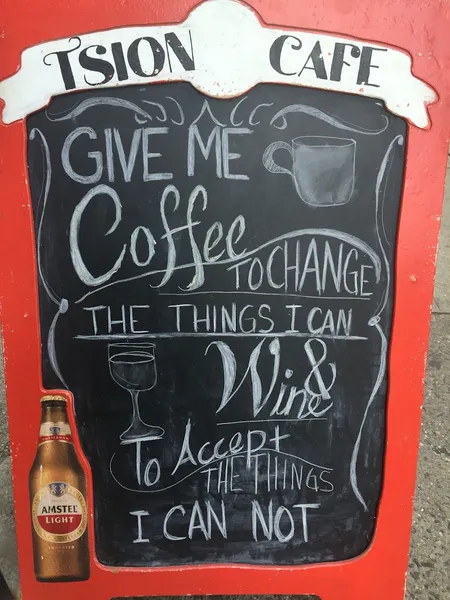 TSION CAFE
GIVE ME
Coffee
TO CHANGE
THE THINGS I CAN
& Wine
To Accept
THE THINGS
I CAN NOT
AMSTEL
LIGHT